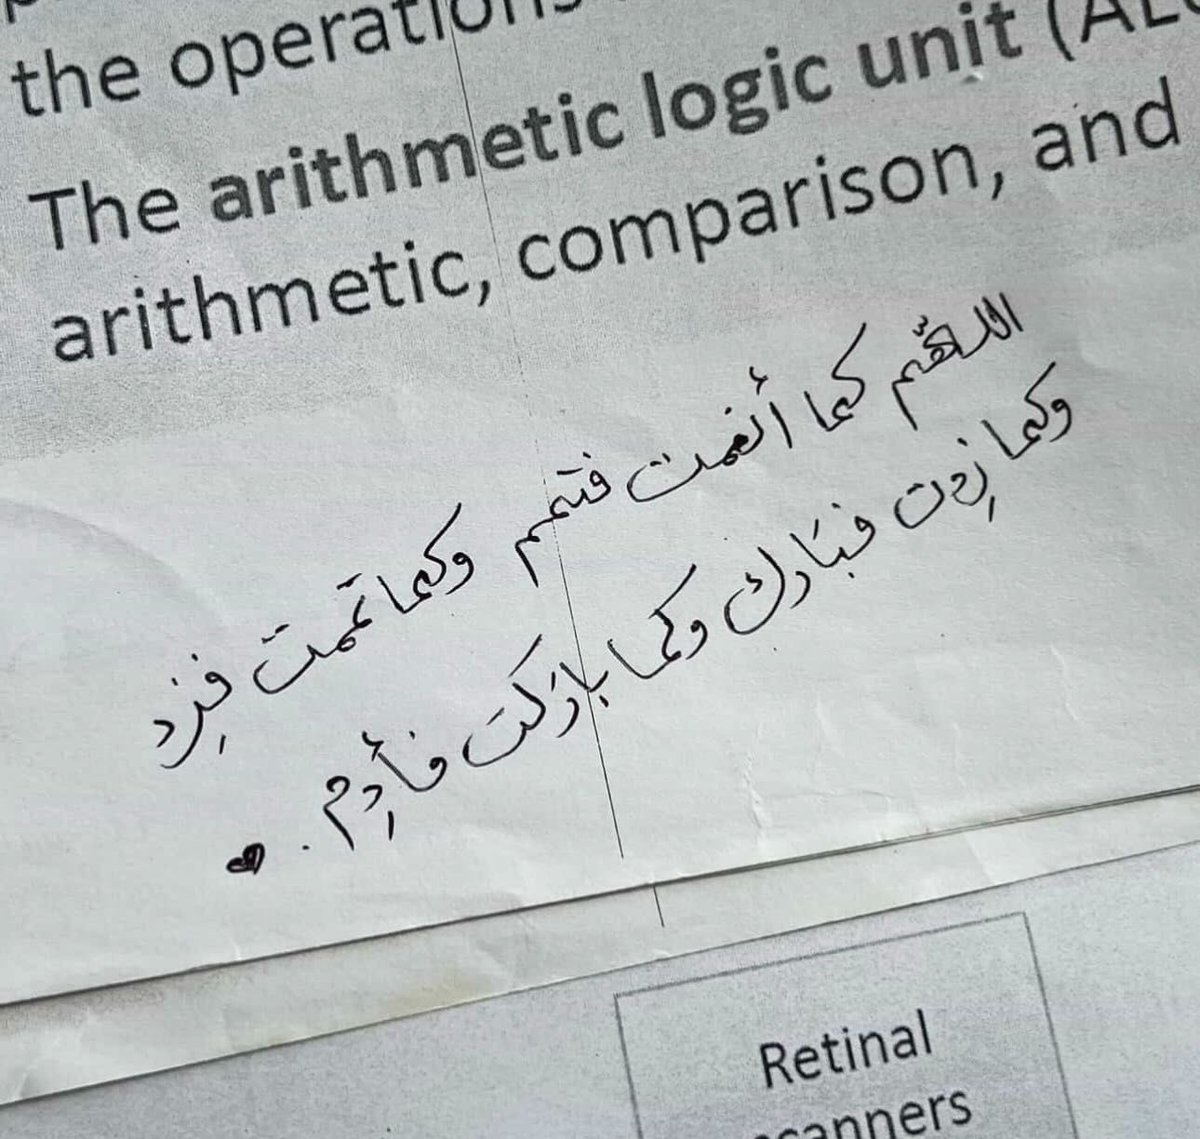 the operations
The arithmetic logic unit (AL
arithmetic, comparison, and
اللهّم كما أنعمت فتمم وكما تممت فزِد
وكما زِدت فبَارك وكما بارَكت فأدِم .
Retinal
scanners